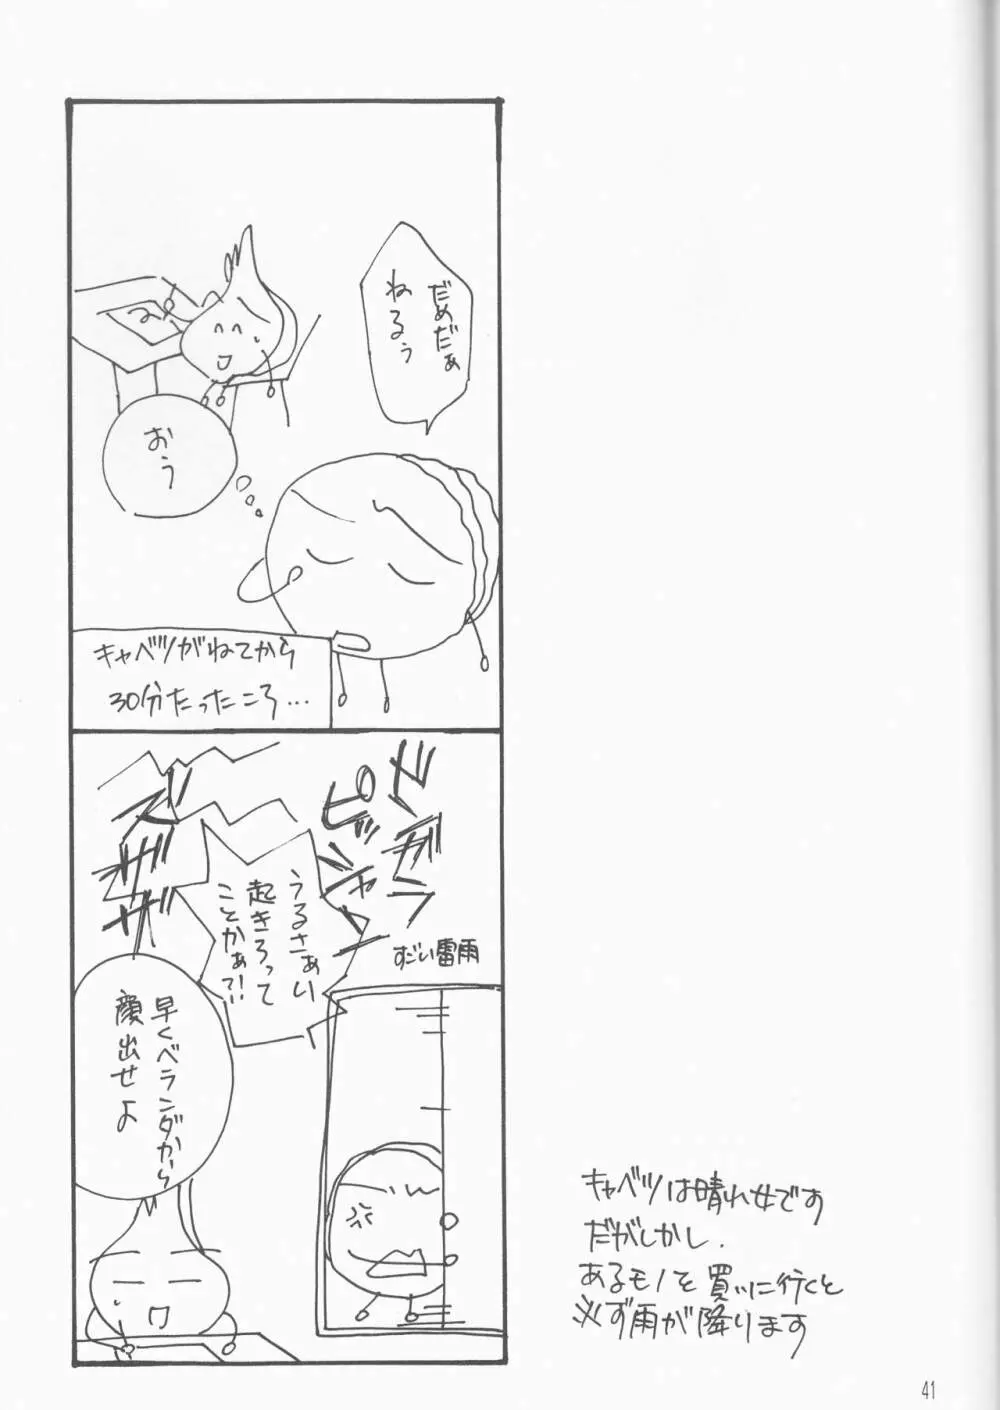 だめだぁ
ねるぅ
おう
キャベツがねてから
30分たったころ…
ドガラ
ピシャ
ズガザ
すごい雷雨
うるさぁい
起きろって
ことかぁ?!
早くベランダから
顔出せよ
キャベツは晴れ女です
だがしかし、
あるモノを買いに行くと
必ず雨が降ります
41